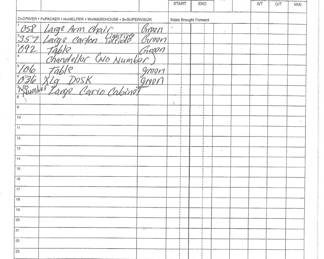 START END WT O/T
D=DRIVER P=PACKER H=HELPER W=WAREHOUSE S=SUPERVISOR Totals Brought Forward
058 Large Arm Chair Green
357 Large Carton Green
092 Table Green
Chandelier (No Number)
106 Table green
036 XLg Desk green
No Number Large Curio Cabinet
9
10
11
12
13
14
15
16
17
18
19
20
21
22
23